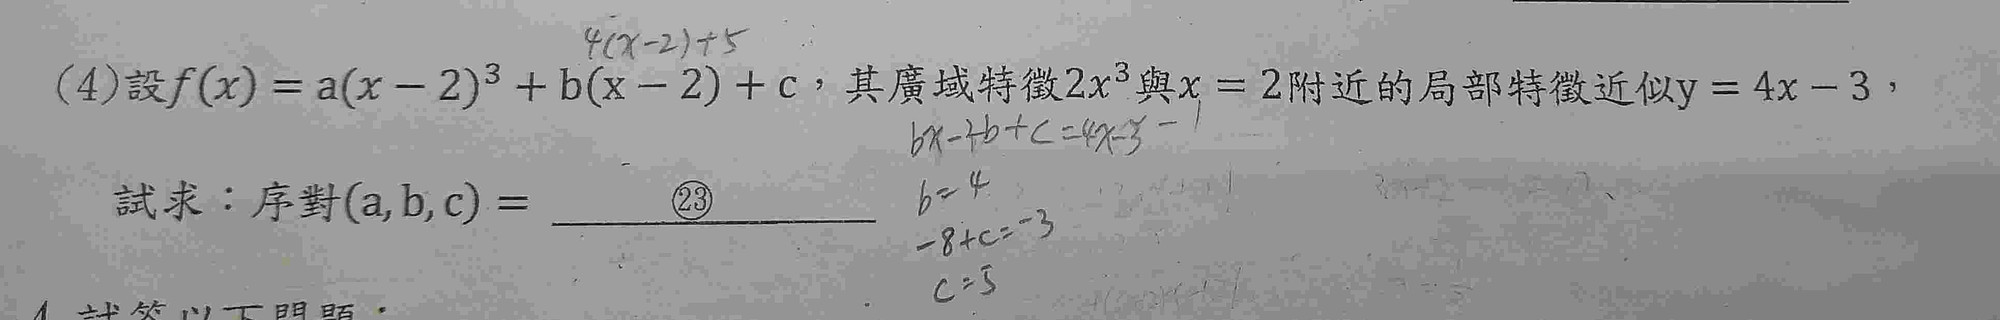 4(x-2)+5
(4)設f(x) = a(x − 2)³ + b(x − 2) + c，其廣域特徵2x³與x = 2附近的局部特徵近似y = 4x − 3，
bx-2b+c=4x-3
試求：序對(a, b, c) = ㉓
b=4
-8+c=-3
c=5
4 試答以下問題：